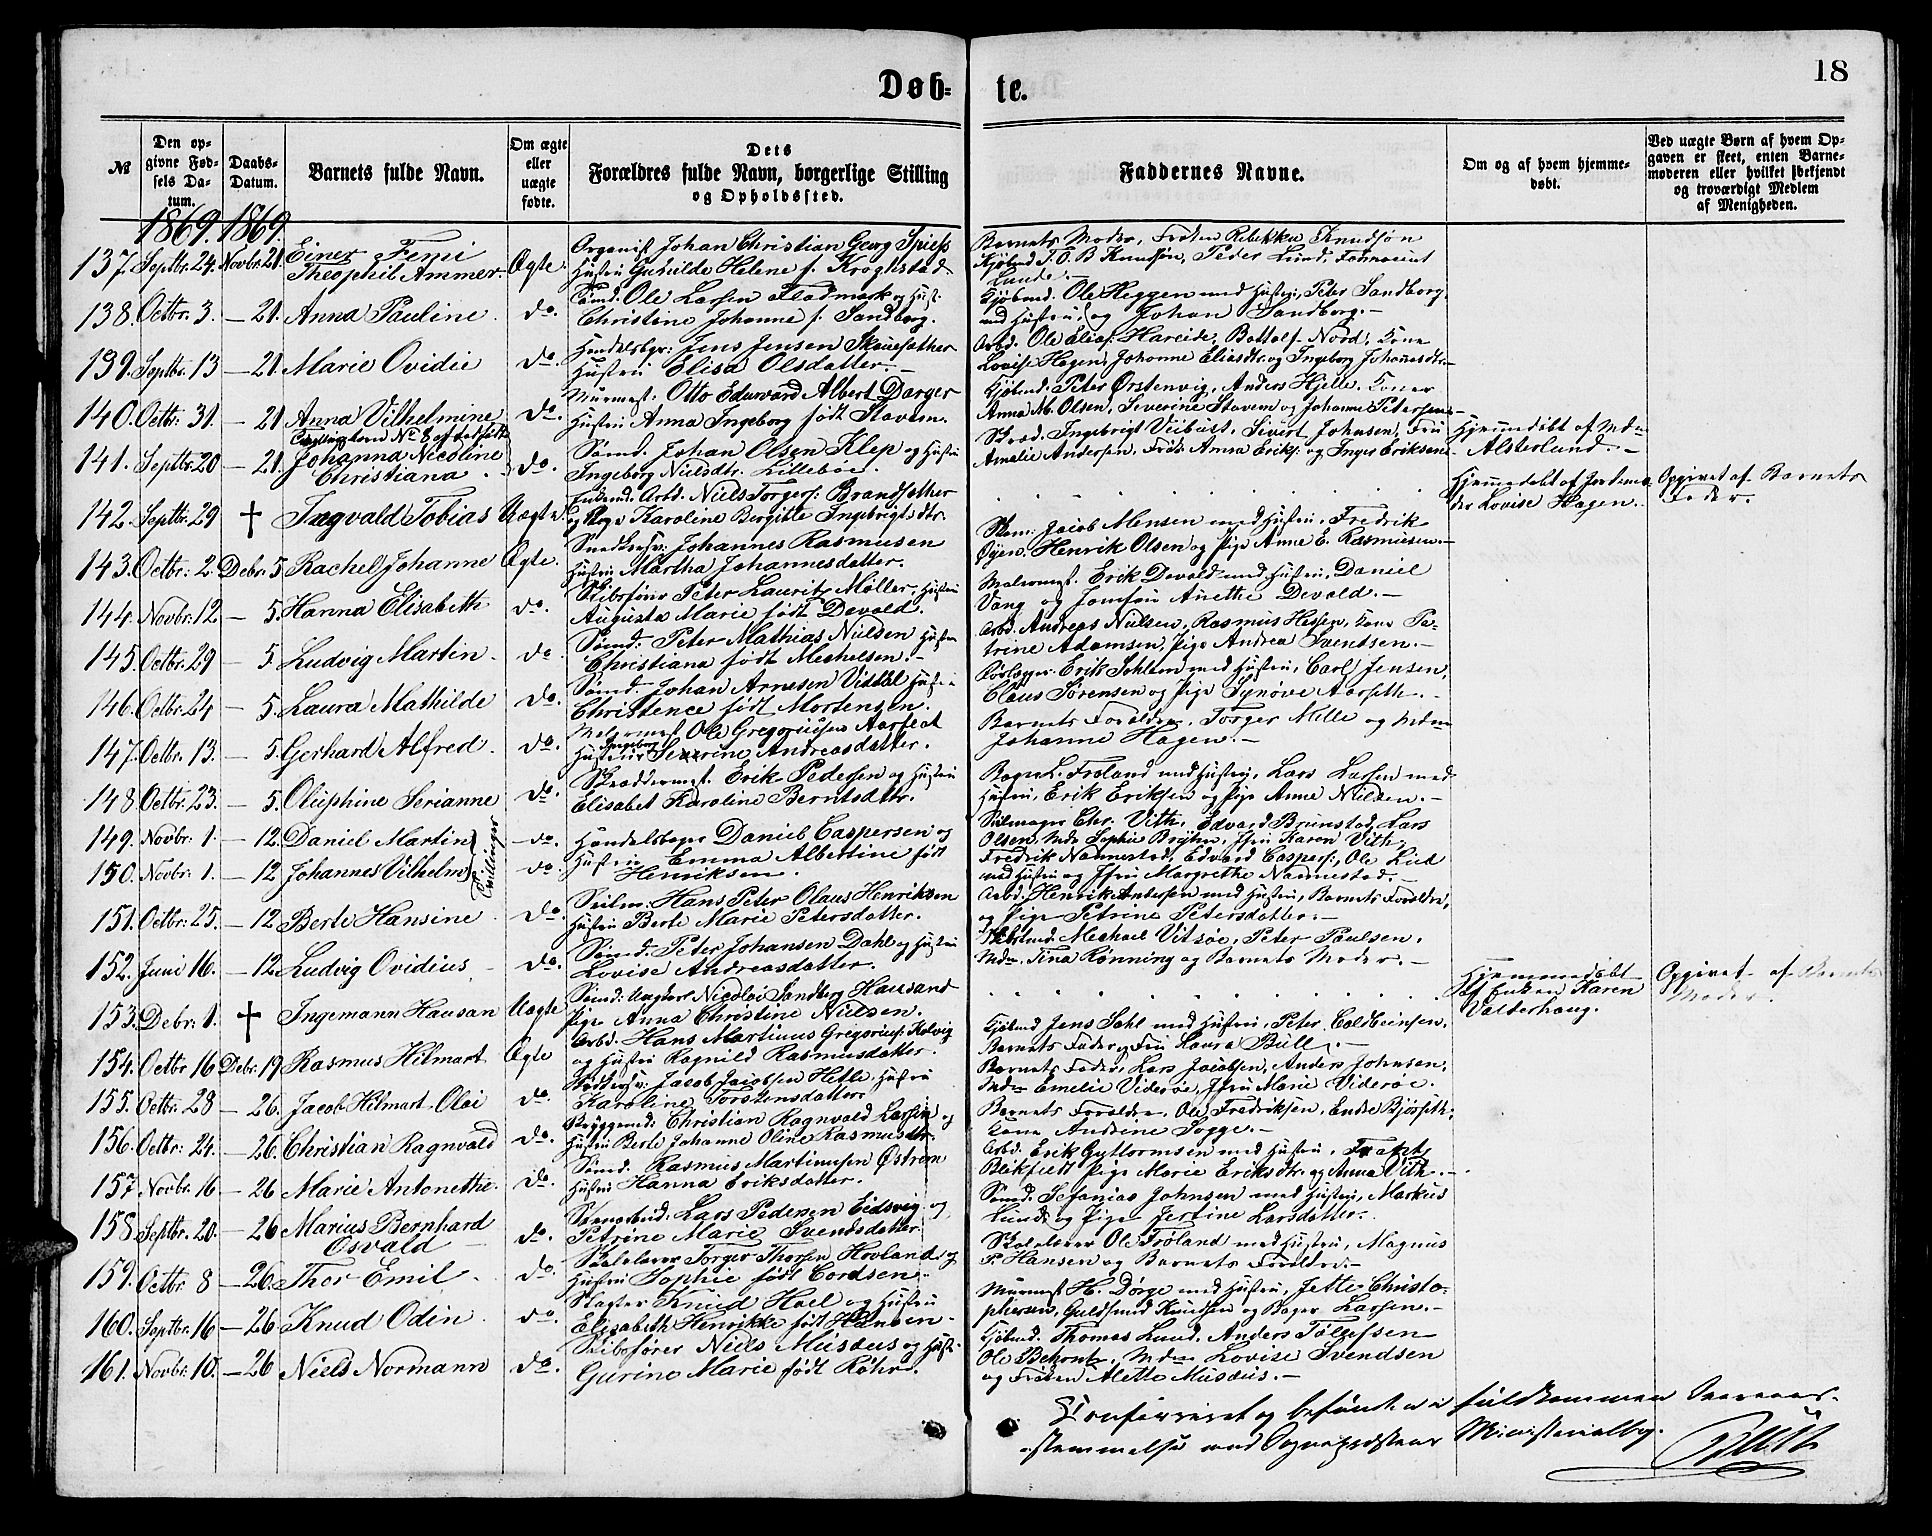 Døb-
te.
18
№
Den op-
givne Fød-
sels Da-
tum.
Daabs-
Datum.
Barnets fulde Navn.
Om ægte
eller
uægte
fødte.
Dets
Forældres fulde Navn, borgerlige Stilling
og Opholdssted.
Faddernes Navne.
Om og af hvem hjemme-
døbt.
Ved uægte Børn af hvem Op-
gaven er skeet, enten Barne-
moderen eller hvilket bekjendt
og troværdigt Medlem
af Menigheden.
1869. 1869.
137. Septbr. 24. Novbr. 21. Einer
Theophil Ammer. Ægte. Organist Johan Christian Georg Spiess
Hustru Gunhilde Helene f. Kroghstad
Barnets Moder, Frøken Rebekka Knudson
Kjøbmd. T. O. B Knudson, Peder Lund,
Lunde.
138. Octbr. 3. — 21. Anna Pauline. do. Sømd. Ole Larsen Fladmark og Hust.
Christine Johanne f. Sandborg.
Kjøbmd. Ole Heggen med Hustru, Peter Sandborg
med Hustru og Johan Sandborg.—
139. Septbr. 13 — 21. Marie Ovidie do. Handelsbgr. Jens Jensen Skouesæther
Hustru Elisa Olsdatter.—
Arbd. Ole Elias. Hareide, Bottolf Nord, Kone
Lovise Hagen, Johanne Eliasdr. og Ingeborg Johannesdr.—
140. Octbr. 31. — 21. Anna Vilhelmine do. Murmest. Otto Edurvard Albert Dørger
Hustru Anna Ingeborg født Stavem.
Kjøbmd. Peter Ørstenvig, Anders Hjelle. Koner
Anna M. Olsen, Severine Stavem og Johanne Petersen.—
141. Septbr. 20 — 21. Johanna Nicoline
Christiana. do. Sømd. Johan Olsen Klep og Hustru
Ingeborg Nielsdtr. Lillebøe.
Skrd. Ingebrigt Veibust, Sivert Johnsen, Fru
Amalie Andersen, Frøk. Anna Eriks. og Inger Eriksen
Hjemmedøbt af Mdm
Alsterlund.—
142. Septbr. 29 † Ingvald Tobias Uægte. Enkemd. Arbd. Niels Torgers. Brandsæther
og Pige Karoline Bergitte Ingebrigtsdtr.
Hjemmedøbt af Jordemo-
der Lovise Hagen.
Opgivet af Barnets
Fader.
143. Octbr. 2. Debr. 5. Rachel Johanne Ægte. Snedkersv. Johannes Rasmusen
Hustru Martha Johannesdatter.
Skom. Jacob Monsen med Hustru, Fredrik
Øyen, Henrik Olsen og Pige Anne E. Rasmusen.—
144. Novbr. 12 — 5. Hanna Elisabeth do. Skibsfører Peter Lauritz Møller, Hustru
Augusta Marie født Devold.
Malermest. Erik Devold med Hustru, Daniel
Vang og Jomfru Anethe Devold.—
145. Octbr. 29 — 5. Ludvig Martin. do. Sømd. Peter Mathias Nielsen Hustru
Christiana født Mechelsen.—
Arbd. Andreas Nielsen, Rasmus Hessen, Kone Pe-
trine Adamsen, Pige Andrea Svendsen.—
146. Octbr. 24 — 5. Laura Mathilde do. Sømd. Johan Arnesen Viddal Hustru
Christence født Mortensen.
Erik Sohlem med Hustru, Carl Jensen,
Claus Sørensen og Pige Synøve Aarseth.—
147. Octbr. 13. — 5. Gerhard Alfred. do. Malermest. Ole Gregoriusen Aarflot
Hustru Ingeborg Severine Andreasdatter.
Barnets Forældre, Torger Melle og Mdm
Johanne Hagen.—
148. Octbr. 23. — 5. Oluphine Serianne do. Skræddermest. Erik Pedersen og Hustru
Elisabet Karoline Berntsdtr.
Froland med Hustru, Lars Larsen med
Hustru, Erik Eriksen og Pige Anne Nielsen.—
149. Novbr. 1. — 12. Daniel Martin do. Handelsbager Daniel Caspersen og
Chr. Vith, Edvard Brunstad, Lars
Olsen, Mdm Sophie Jfru Karen Vith,
150. Novbr. 1. — 12. Johannes Vilhelm do. Hustru Emma Albertine født
Henriksen.
Tvillinger
Fredrik Nannestad, Edvard Caspers., Ole Lied
med Hustru og Jfru Margrethe Nannestad.—
151. Octbr. 25. — 12. Berte Hansine. do. Seilm. Hans Peter Olaus Henriksen
Hustru Berte Marie Petersdatter.
Arbd. Henrik Andersen med Hustru, Barnets Forældre,
og Pige Petrine Petersdatter.—
152. Juni 16. — 12. Ludvig Ovidius. do. Sømd. Peter Johansen Dahl og Hustru
Lovise Andreasdatter.
Mechael Vitsøe, Peter Paulsen.
Mdm. Tina Rønning og Barnets Moder.—
153. Debr. 1. † Ingemann Hausan Uægte Sømd. Ungkarl Nicolai Sandberg Hausand
Pige Anna Christine Nielsen.
Hjemmedøbt
af Enken Karen
Valderhaug.
Opgivet af Barnets
Moder.
154. Octbr. 16. Debr. 19. Rasmus Hilmart. Ægte Arbd. Hans Martinus Gregorius. Kolvig
og Hustru Ragnild Rasmusdatter.
Kjøbmd Jens Sahl med Hustru, Peter
Barnets Fader, Fru Laura Bull.—
155. Octbr. 28 — 26. Jacob Hilmart Olai do. Jacob Jacobsen Hetle Hustru
Karoline Torstensdatter.
Barnets Fader, Lars Jacobsen, Anders Johnsen,
Mdm Emelie Viderøe, Jfru Marie Viderøe.
156. Octbr. 24. — 26. Christian Ragnvald do. Bryggemd. Christian Ragnvald Larsen og
Hustru Berte Johanne Oline Rasmusdtr.
Barnets Forældre, Ole Fredriksen, Endre Bjørseth,
Kone Andrine Sogge.—
157. Novbr. 16 — 26 Marie Antonette. do. Sømd. Rasmus Martinusen Østrem
Hustru Hanna Eriksdatter.
Arbd. Erik Guttormsen med Hustru,
Blikfeldt Pige Marie Eriksdtr. og Anna Vith.—
158. Septbr. 20. — 26 Marius Bernhard
Osvald do. Lars Pedersen Eidsvig og
Petrine Marie Svendsdatter.
Sømd. Sefanias Johnsen med Hustru, Markus
Lund og Pige Jertine Larsdatter.
159. Octbr 8 — 26. Thor Emil. do. Skolelærer Torger Thorsen Hovland og
Hustru Sophie født Cordsen.
Skolelærer Ole Frøland med Hustru, Magnus
P. Hansen og Barnets Forældre.—
160. Septbr. 16 — 26 Knud Odin. do. Slagter Knud Hoel og Hustru
Elisabeth Henrikke født Hansen.
Murmest H. Dørge med Hustru, Jette Christo-
phersen, Guldsmed Knudsen og Bager Larsen.—
161. Novbr. 10. — 26 Niels Normann do. Skibsfører Niels Musæus og Hust.
Gurine Marie født Røhr.
Kjøbmd. Thomas Lund. Anders Tøllefsen
Ole Mdm Lovise Svendsen
og Frøken Alette Musæus.—
Confereret og befundet i fuldkommen Overens-
stemmelse med Sognepræstens Ministerialbog.